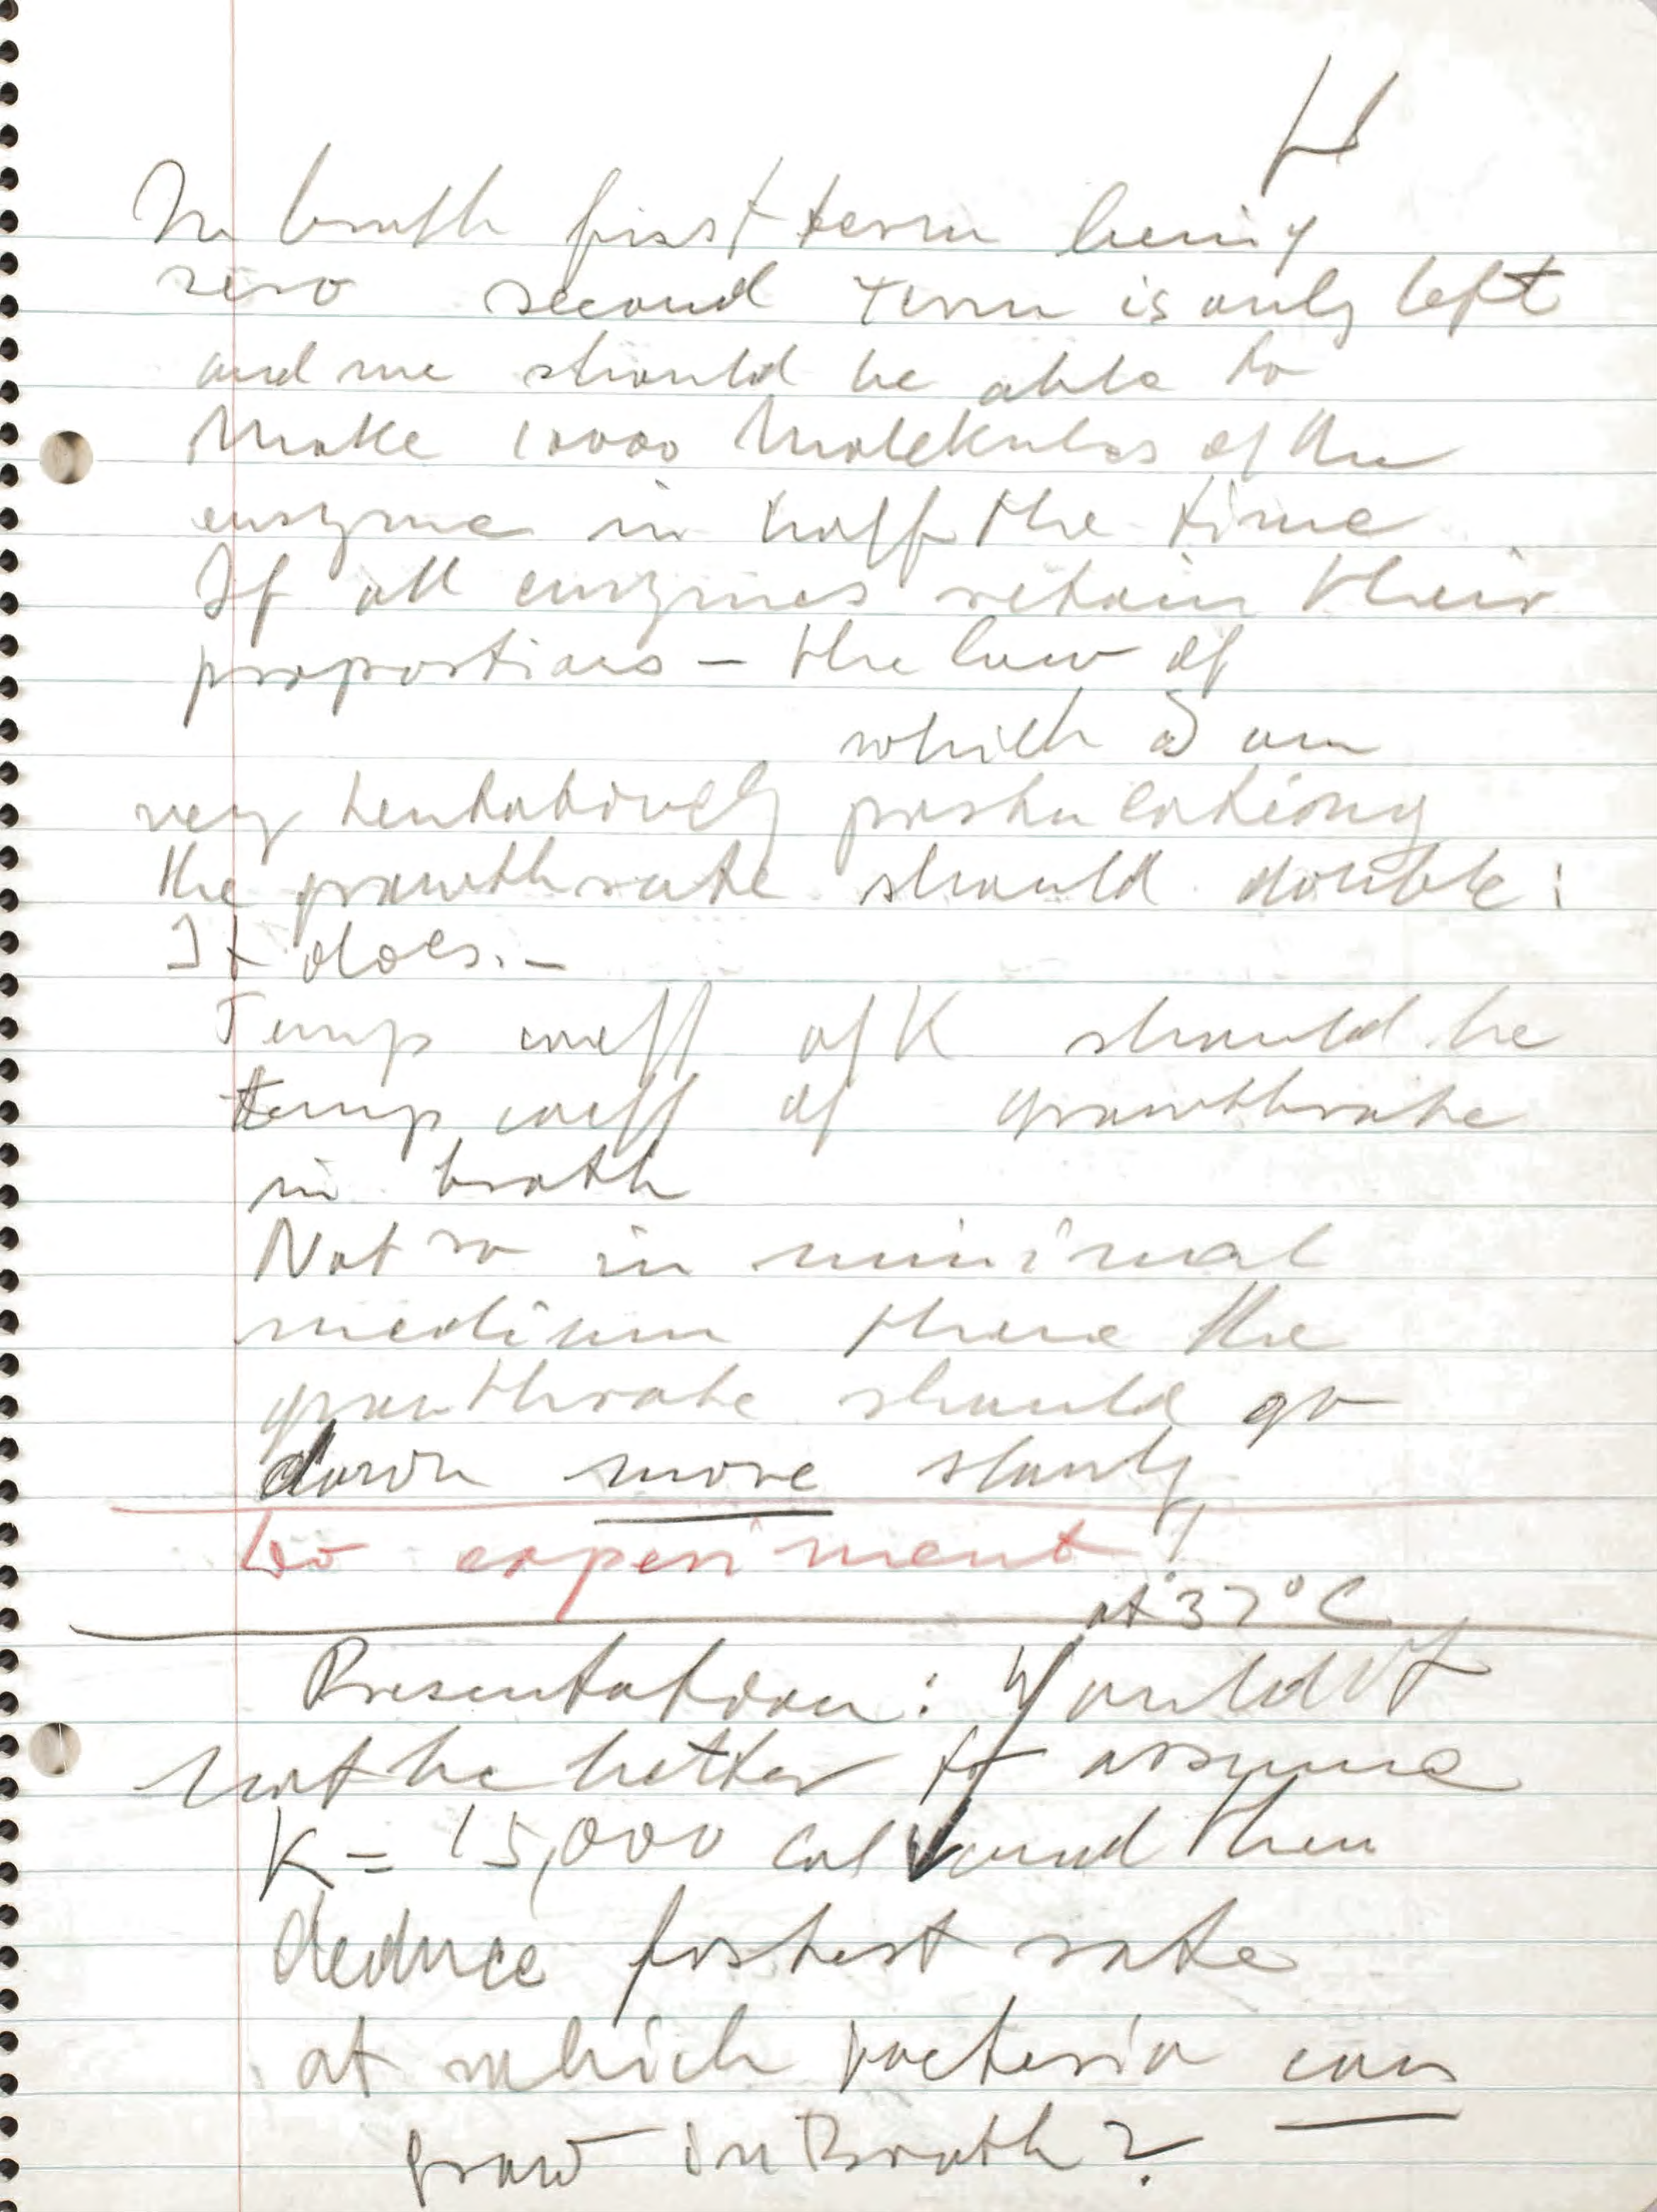 H
In broth first term being
zero second term is only left
and we should be able to
make 10000 Molekules of the
enzyme in half the time
If all enzymes retain their
proportions – the law of
which I am
very tentatively postulationg
the growthrate should double:
It does. –
Temp coeff of K should be
temp coeff of growthrate
in broth
Not so in minimal
medium there the
growthrate should go
down more slowly
Do experiment!
at 37°C
Presentation: Would it
not be better to assume
K = 15,000 cal and then
deduce fastest rate
at which bacteria can
grow in Broth?